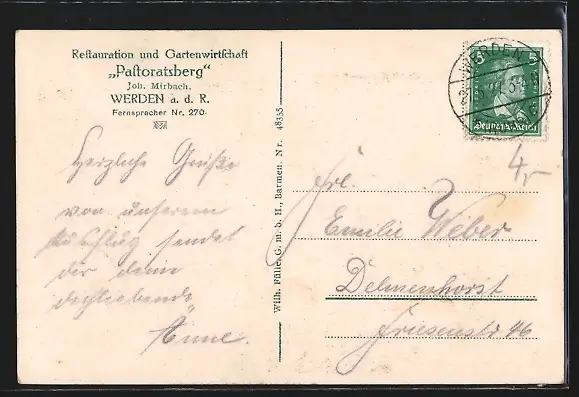 Restauration und Gartenwirtschaft
„Pastoratsberg“
Joh. Mirbach,
WERDEN a. d. R.
Fernsprecher Nr. 270
Herzliche Grüße
von unserem
Ausflug sendet
dir deine
dichliebende
Anne.
Wilh. Fülle, G. m. b. H., Barmen. Nr. 48355
5 5
Deutsches Reich
WERDEN
4,-
Frl.
Emilie Weber
Delmenhorst
Friesenstr 46